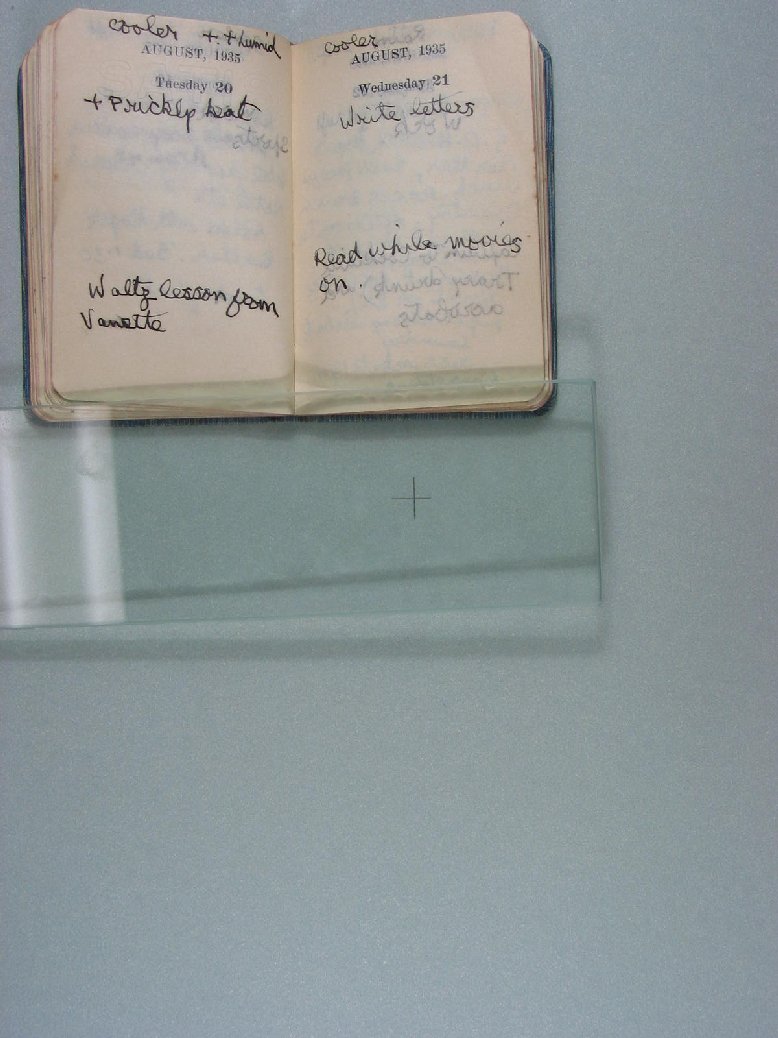 cooler + + humid
AUGUST, 1935
Tuesday 20
+ Prickly heat
Waltz lesson from
Vanette
cooler
AUGUST, 1935
Wednesday 21
Write letters
Read while movies
on.